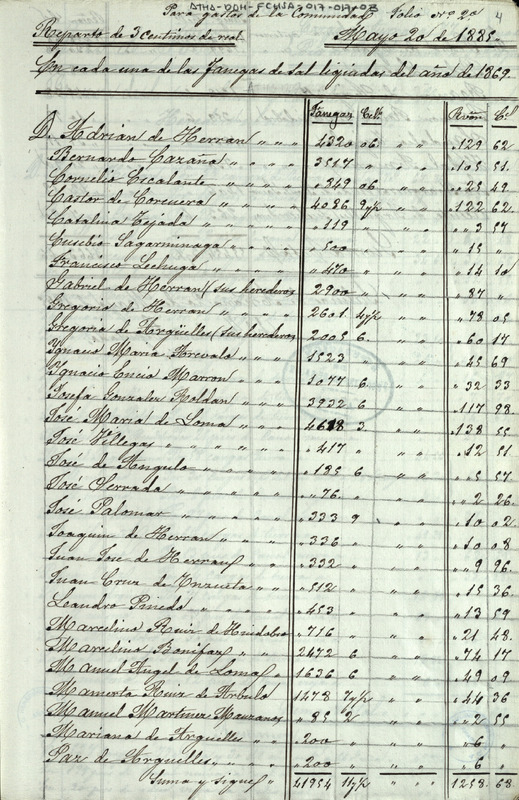 ATHA-DDH-FCHSA-017-017-02
Para gastos de la Comunidad Folio nº 20. 4
Reparto de 3 centimos de real. Mayo 20 de 1885.
En cada una de las Fanegas de Sal ligiadas del año de 1869.
Fanegas Cels. Rvon Cs
D. Adrian de Herran " " " 4320 06 " " " 129 62
Bernardo Cazaña " " " " 3517 " " " " 105 51
Cornelio Escalante " " " " 849 06 " " " 25 49
Castor de Corcuera " " " 4086 9½ " " " 122 62
Catalina Tejada " " " " 119 " " " " 3 57
Eusebio Sagarminaga " " " " 500 " " " " 15 "
Francisco Lechuga " " " " 470 " " " " 14 10
Gabriel de Herran (sus herederos 2900 " " " " 87 "
Gregorio de Herran " " " 2601 4½ " " " 78 05
Gregoria de Arguelles (sus herederos 2005 6 " " " 60 17
Ygnacio Maria Arevalo " " " 1523 " " " 45 69
Ygnacio Encio Marron " " " 1077 6 " " " 32 33
Josefa Gonzalez Roldan " " " 3932 6 " " " 117 98
José Maria de Loma " " " 4618 3 " " " 138 55
José Villegas " " " " " 417 " " " " 12 51
José de Angulo " " " " " 185 6 " " " 5 57
José Serrada " " " " " 76 " " " " 2 26
Jose Palomar " " " " 333 9 " " " 10 02
Joaquin de Herran " " " " 336 " " " " 10 08
Juan Jose de Herran " " " 332 " " " " 9 96
Juan Cruz de Unzueta " " " 512 " " " " 15 36
Leandro Pinedo " " " " 453 " " " " 13 59
Marcelino Ruiz de Huidobro " 716 " " " " 21 48
Marcelina Bonifaz " " " 2472 6 " " " 74 17
Manuel Angel de Loma " " 1636 6 " " " 49 09
Mamerta Ruiz de Arbulo 1478 7½ " " " 44 36
Manuel Martinez " 85 2 " " " 2 55
Mariana de Arguelles " " " 200 " " " " 6 "
Paz de Arguelles " " " " 200 " " " " 6 "
Suma y sigue " 41954 11½ " " 1258 68